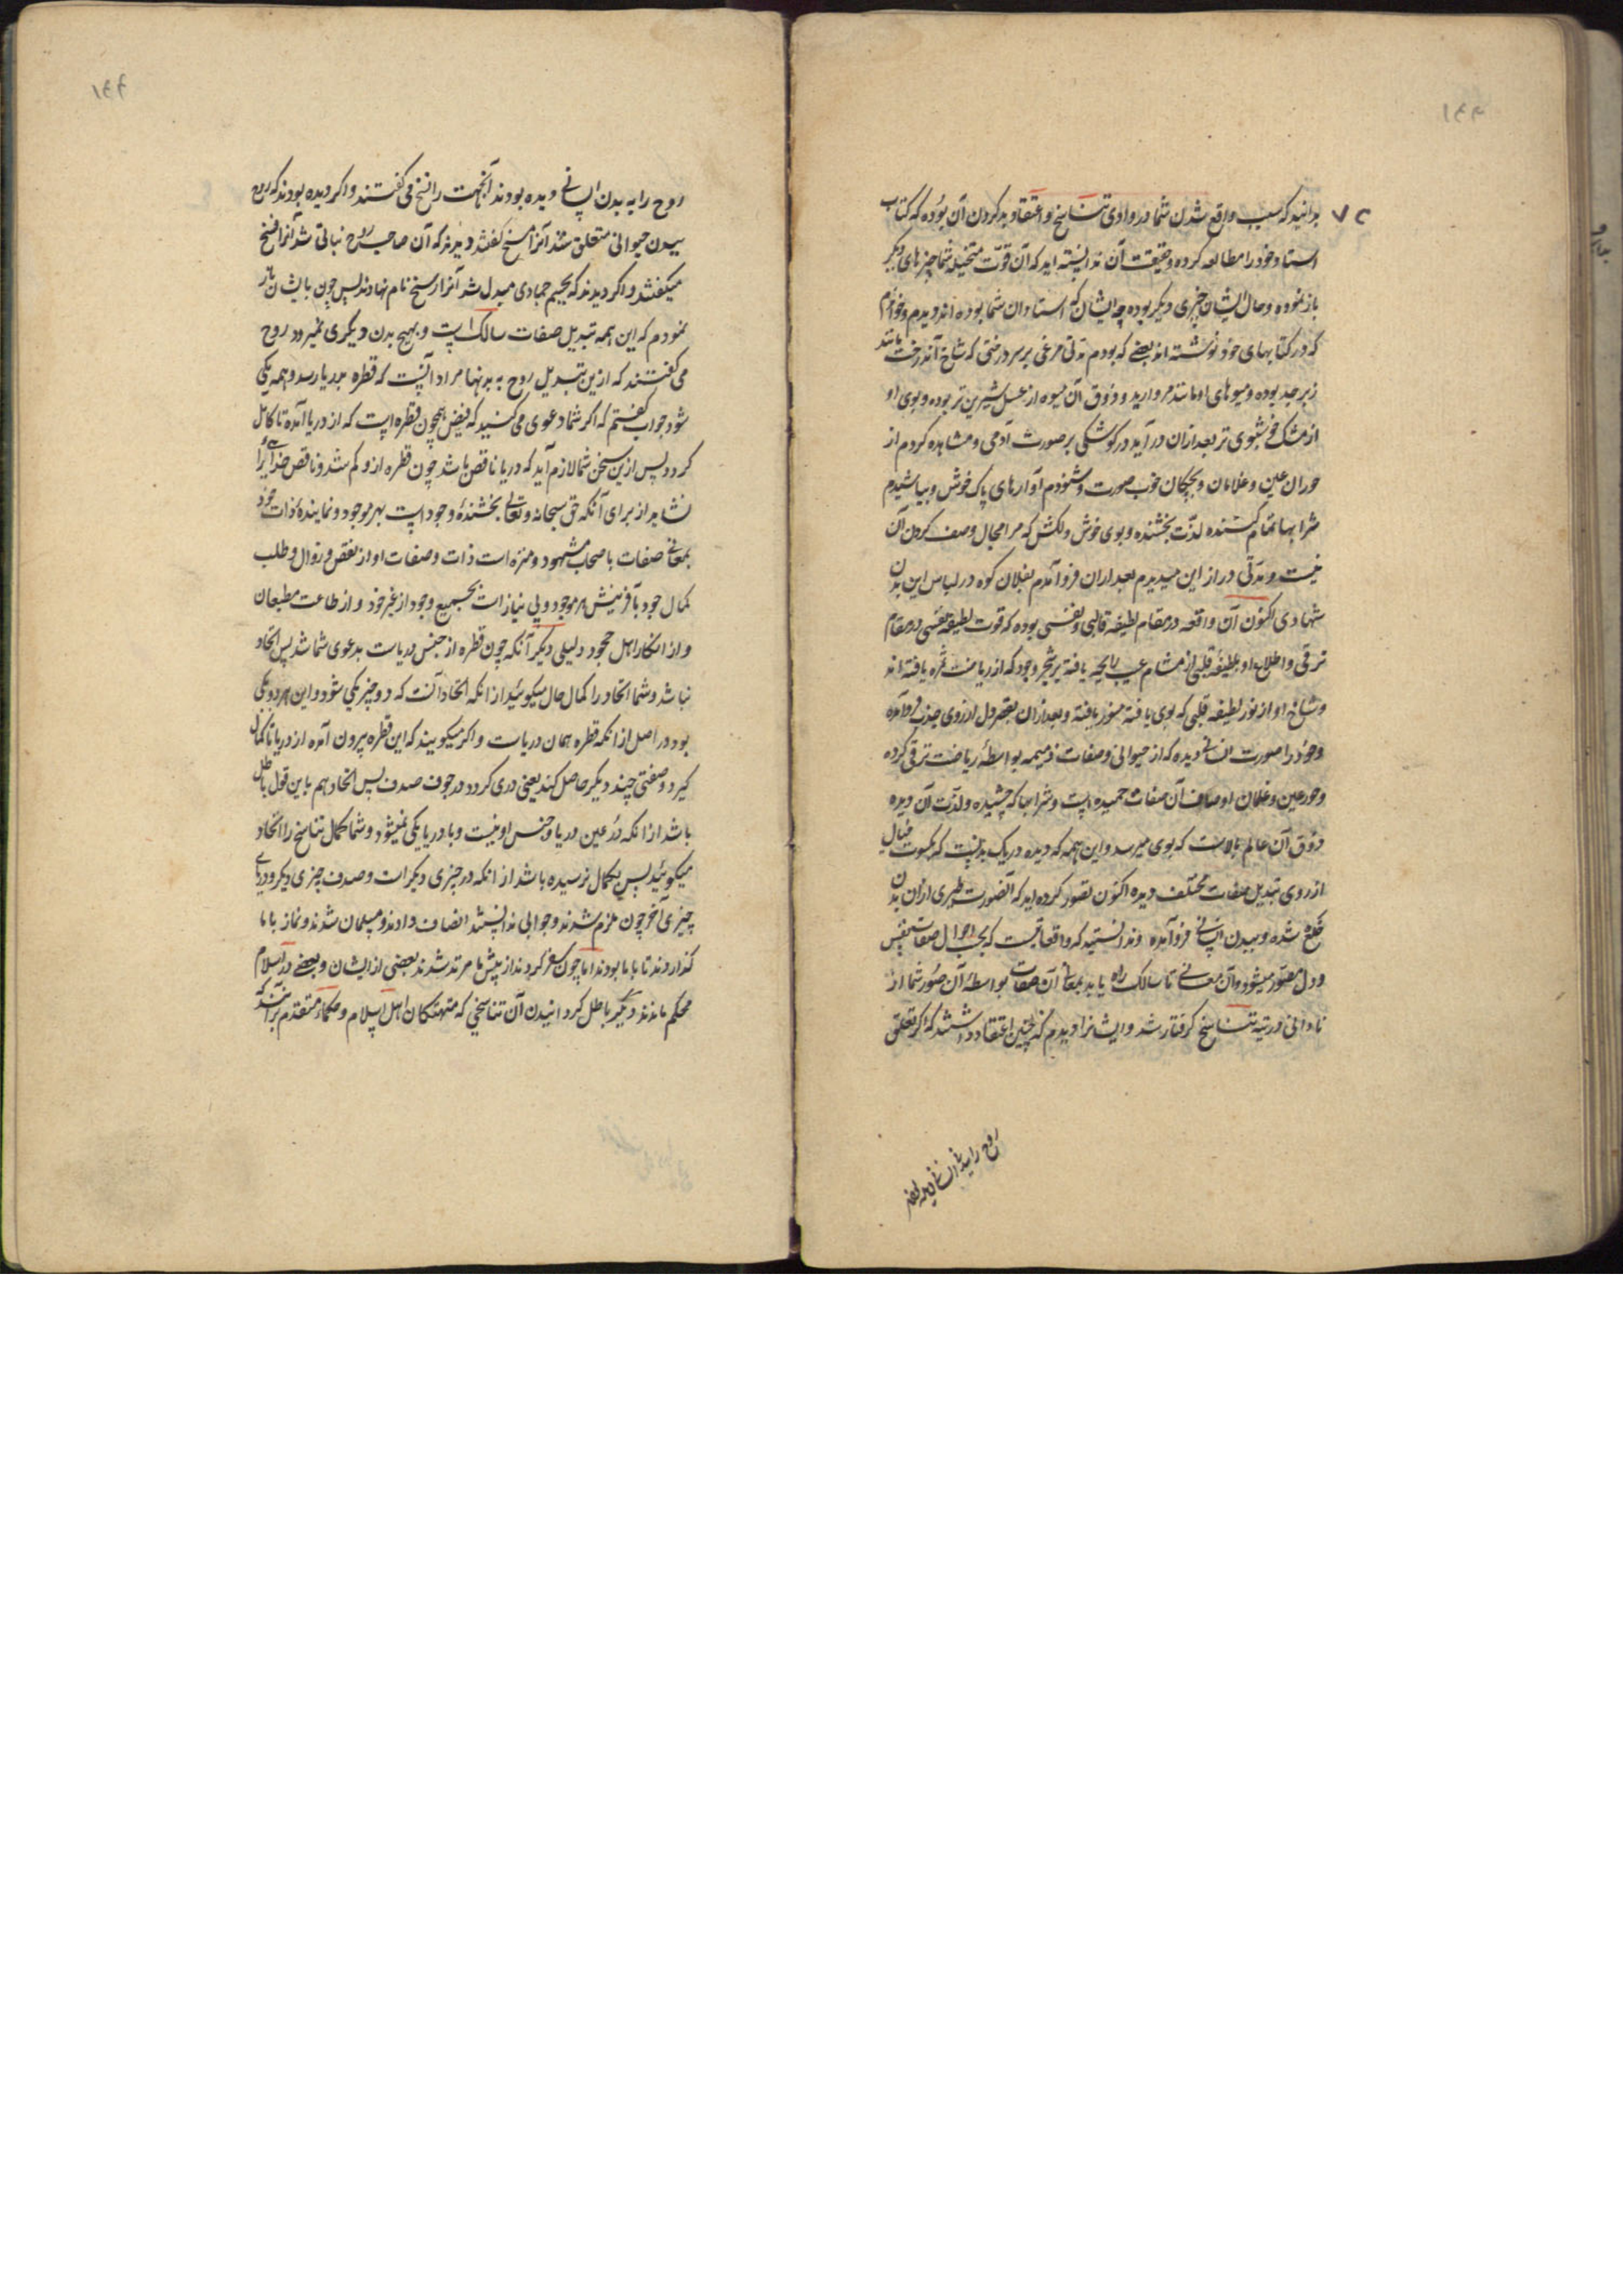 بدانید که سبب واقع شدن شما در وادی تناسخ و اعتقاد بد کردن آن بوده که کتاب
استاد خود را مطالعه کرده و حقیقت آن ندانسته اید که آن قوت متخیله شما چیزهای دیگر
باز نموده و حال ایشان چیزی دیگر بوده چه ایشان که استادان شما بوده اند دیدم و خواندم
که در کتابهای خود نوشته اند بعضے که بودم مدتی مرغی بر سر درختی که شاخ آندرخت مانند
زبرجد بوده و میوهای او مانند مروارید و ذوق آن میوه از عسل شیرین تر بوده و بوی او
از مشک خوشبوی تر بعد ازان در آید در کوشکی بر صورت آدمی و مشاهده کردم از
حوران عین و غلامان و بچکان خوب صورت و شنودم آوازهای پاک خوش و بیاشیدم
شرابها تمام کننده لذت بخشنده و بوی خوش دلکش که مرا مجال وصف کردن آن
نیست و مدتی دراز این میدیدم بعد ازان فرو آمدم بفلان کوه در لباس این بدن
شهادی اکنون آن واقعه در مقام لطیفه قالبی و نفسی بوده که قوت لطیفه نفسی در مقام
ترقی و اطلاع او بلطیفه قلبی از مشام غیب رایحه یافته بر شجر وجود که از ریاضت ثمره یافته اند
و شاخ او از نور لطیفه قلبی که بوی یافته منور یافته و بعد ازان بقصر دل از روی جذب فرو آمده
و خود را صورت انسانے دیده که از حیوانی و صفات ذمیمه بواسطهٔ ریاضت ترقی کرده
و حور عین و غلمان اوصاف آن صفات حمیده است و شرابها که چشیده و لذت آن دیده
ذوق آن عالم بالاست که بوی میرسد و این همه که دیده در یک بدنیست که بکسوت خیال
از روی تبدیل صفات مختلف دیده اکنون تصور کرده اید که آنصورت طیری ازان بدن
خلع شده و ببدن انسانے فرو آمده و ندانستید که واقعاتیست که بحسب احوال صفات نفس
و دل مصور میشود و آن معانے تا سالک راه یابد بمعانی آن صفات بواسطهٔ آن صور شما از
نادانی در تیه تناسخ گرفتار شد و ایشانرا دیدم که چنین اعتقاد داشتند که اگر تعلق
روح را ببدن انسانے دیده بودند
روح را به بدن انسانے دیده بودند آنجهت را نسخ می گفتند و اکر دیده بودند که روح
ببدن حیوانی متعلق شد آنرا مسخ گفتند و دیدند که آن صاحب روح نباتی شد آنرا فسخ
میکفتند و اکر دیدند که بجسم جمادی مبدل شد آنرا رسخ نام نهادند پس چون بایشان باز
نمودم که این همه تبدیل صفات سالک است و بهیچ بدن دیکری نمیرود روح
می گفتند که ازین تبدیل روح به بدنها مراد آنست که قطره بدریا رسد و همه یکی
شود جواب گفتم که اکر شما دعوی می کنید که فیض همچون قطره است که از دریا آمده تا کامل
کردد پس ازین سخن شما لازم آید که دریا ناقص باشد چون قطره ازو کم شد و ناقص خدایی را
نشاید از برای آنکه حق سبحانه و تعالی بخشندهٔ وجود است بهر موجود و نمایندهٔ ذات خود
بمعانے صفات باصحاب شهود و منزه است ذات و صفات او از نقص و زوال و طلب
کمال جود بآفرینش هر موجود و بی نیاز است بجمیع وجود از غیر خود و از طاعت مطیعان
و از انکار اهل جحود دلیلی دیکر آنکه چون قطره از جنس دریاست بدعوی شما شد پس اتحاد
نباشد و شما اتحاد را کمال حال میکوئید از انکه اتحاد آنست که دو چیز یکی شود و این هر دو یکی
بود در اصل از انکه قطره همان دریاست و اکر میکویند که این قطره بیرون آمده از دریا تا کمالی
گیرد و صفتی چند دیکر حاصل کند یعنی دری کردد در جوف صدف پس اتحاد هم باین قول باطل
باشد از انکه در عین دریا و جنس او نیست و با دریا یکی نمیشود و شما کمال تناسخ را اتحاد
میکوئید پس بکمال نرسیده باشد از انکه در چیزی دیکر است و صدف چیزی دیکر و دریا
چیزی آخر چون ملزم شدند و جوابی ندانستند انصاف دادند و مسلمان شدند و نماز با ما
کذاردند تا با ما بودند اما چون سفر کردند از پیش ما مرتد شدند بعضی از ایشان و بعضے در اسلام
محکم ماندند دیگر باطل کردانیدن آن تناسخی که متهتکان اهل اسلام و حکماء متقدم برآنند که